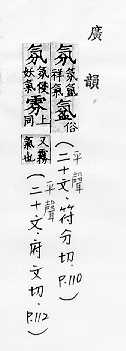 廣韻
氛氛氳祥氣 俗
氛氛祲妖氣雰上同又霧氣也
(平聲二十文．符分切 P.110)
(平聲二十文．府文切．P.112)